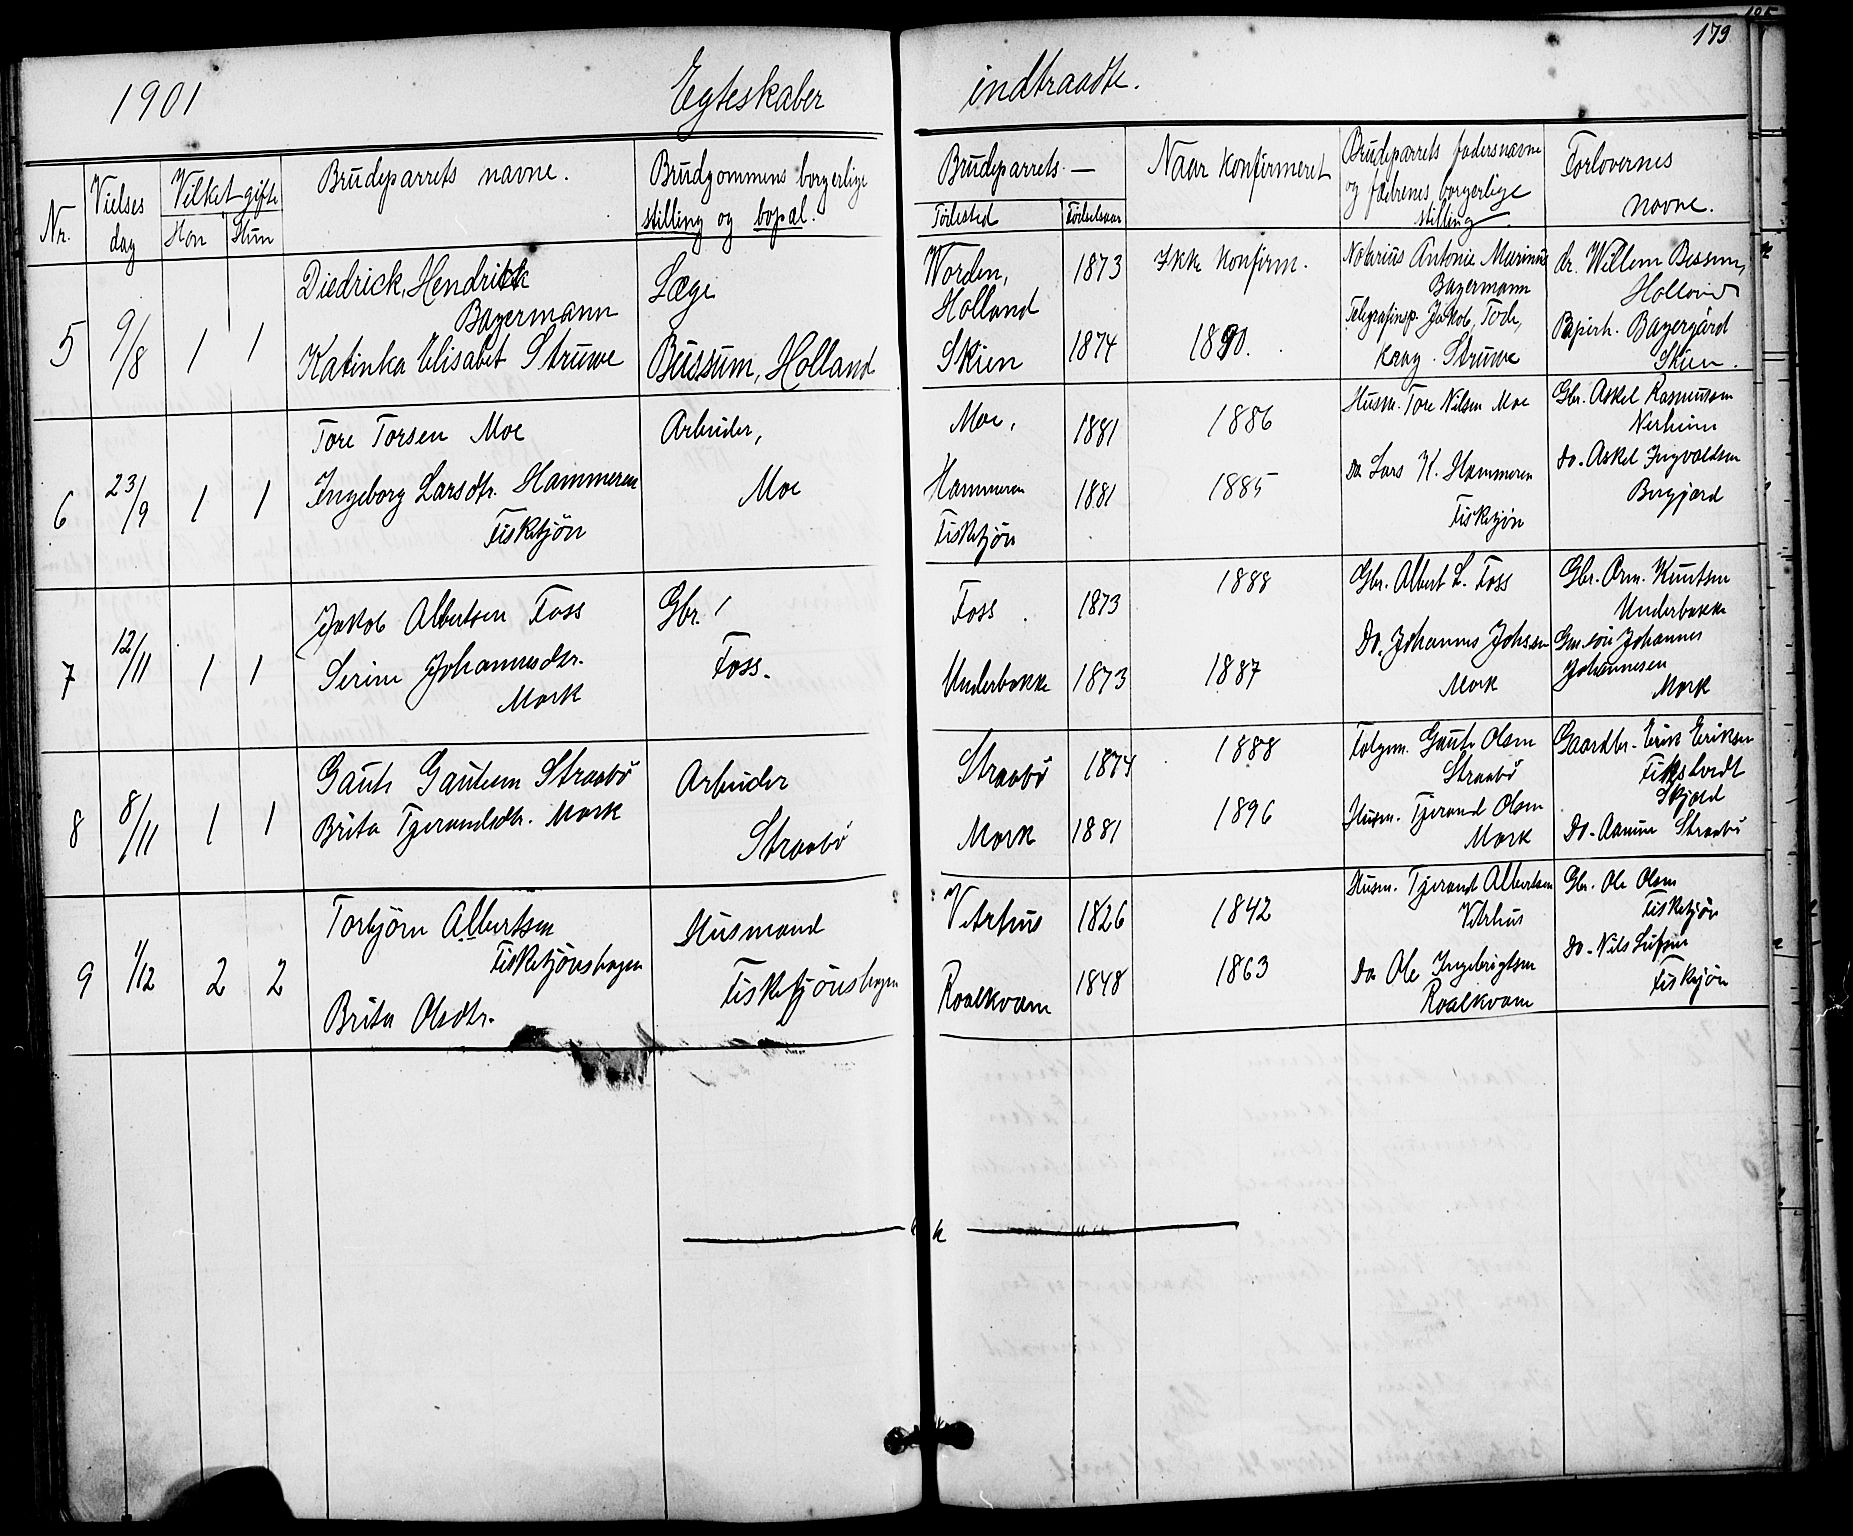 179
1901 Egteskaber indtraadte.
Nr. Vielses dag Vilket gifte Han Hun Brudeparrets navne. Brudgommens borgerlige stilling og bopæl. Brudeparrets — Fødested Fødselsaar Naar konfirmeret Brudeparrets fadersnavne og fædrenes borgerlige stilling. Forlovernes navne.
5 9/8 1 1
Diedrick, Hendrick Bayermann
Katinka Elisabet Struwe
Læge
Bussum, Holland
Worden, Holland 1873 Ikke konfirm.
Skien 1874 1890.
Notarius Antonie Marinus Bayermann
Telegrafinsp. Jakob, Tode, Krag. Struwe
dr. Willem Bessem, Holland
Bayergård Skien.
6 23/9 1 1
Tore Torsen Moe
Ingeborg Larsdtr. Hammeren Fisketjön
Arbeider,
Moe
Moe, 1881 1886
Hammeren Fisketjön 1881 1885
Husm. Tore Nilsen Moe
do Lars K. Hammeren Fisketjön
Gbr. Askel Rasmussen Nerheim
do. Askel Ingvaldsen Bergjord
7 12/11 1 1
Jakob Albertsen Foss
Serine Johannesdtr. Mork
Gbr.
Foss.
Foss 1873 1888
Underbakke 1873 1887
Gbr. Albert L. Foss
Do. Johannes Johsen Mork
Gbr. Arn. Knutsen Underbakke
Johannes Johannesen Mork
8 8/11 1 1
Gaute Gautesen Straabö
Brita Tjerandsdtr. Mork
Arbeider
Straabö
Straabö 1874 1888
Mork 1881 1896
Gaute Olsen Straabö
Husm. Tjerand Olsen Mork
Gaardbr. Erik Eriksen Fikstvedt Skjold
Do. Straabö
9 1/12 2 2
Torbjörn Albertsen Fisketjönshagen
Brita Olsdtr.
Husmand
Fisketjönshagen
Vetrhus 1826 1842
Roalkvam 1848 1863
Husm. Tjerand Albertsen Vetrhus
Do Ole Ingebrigtsen Roalkvam
Gbr. Ole Olsen Fisketjön
Do. Nils Fisketjön